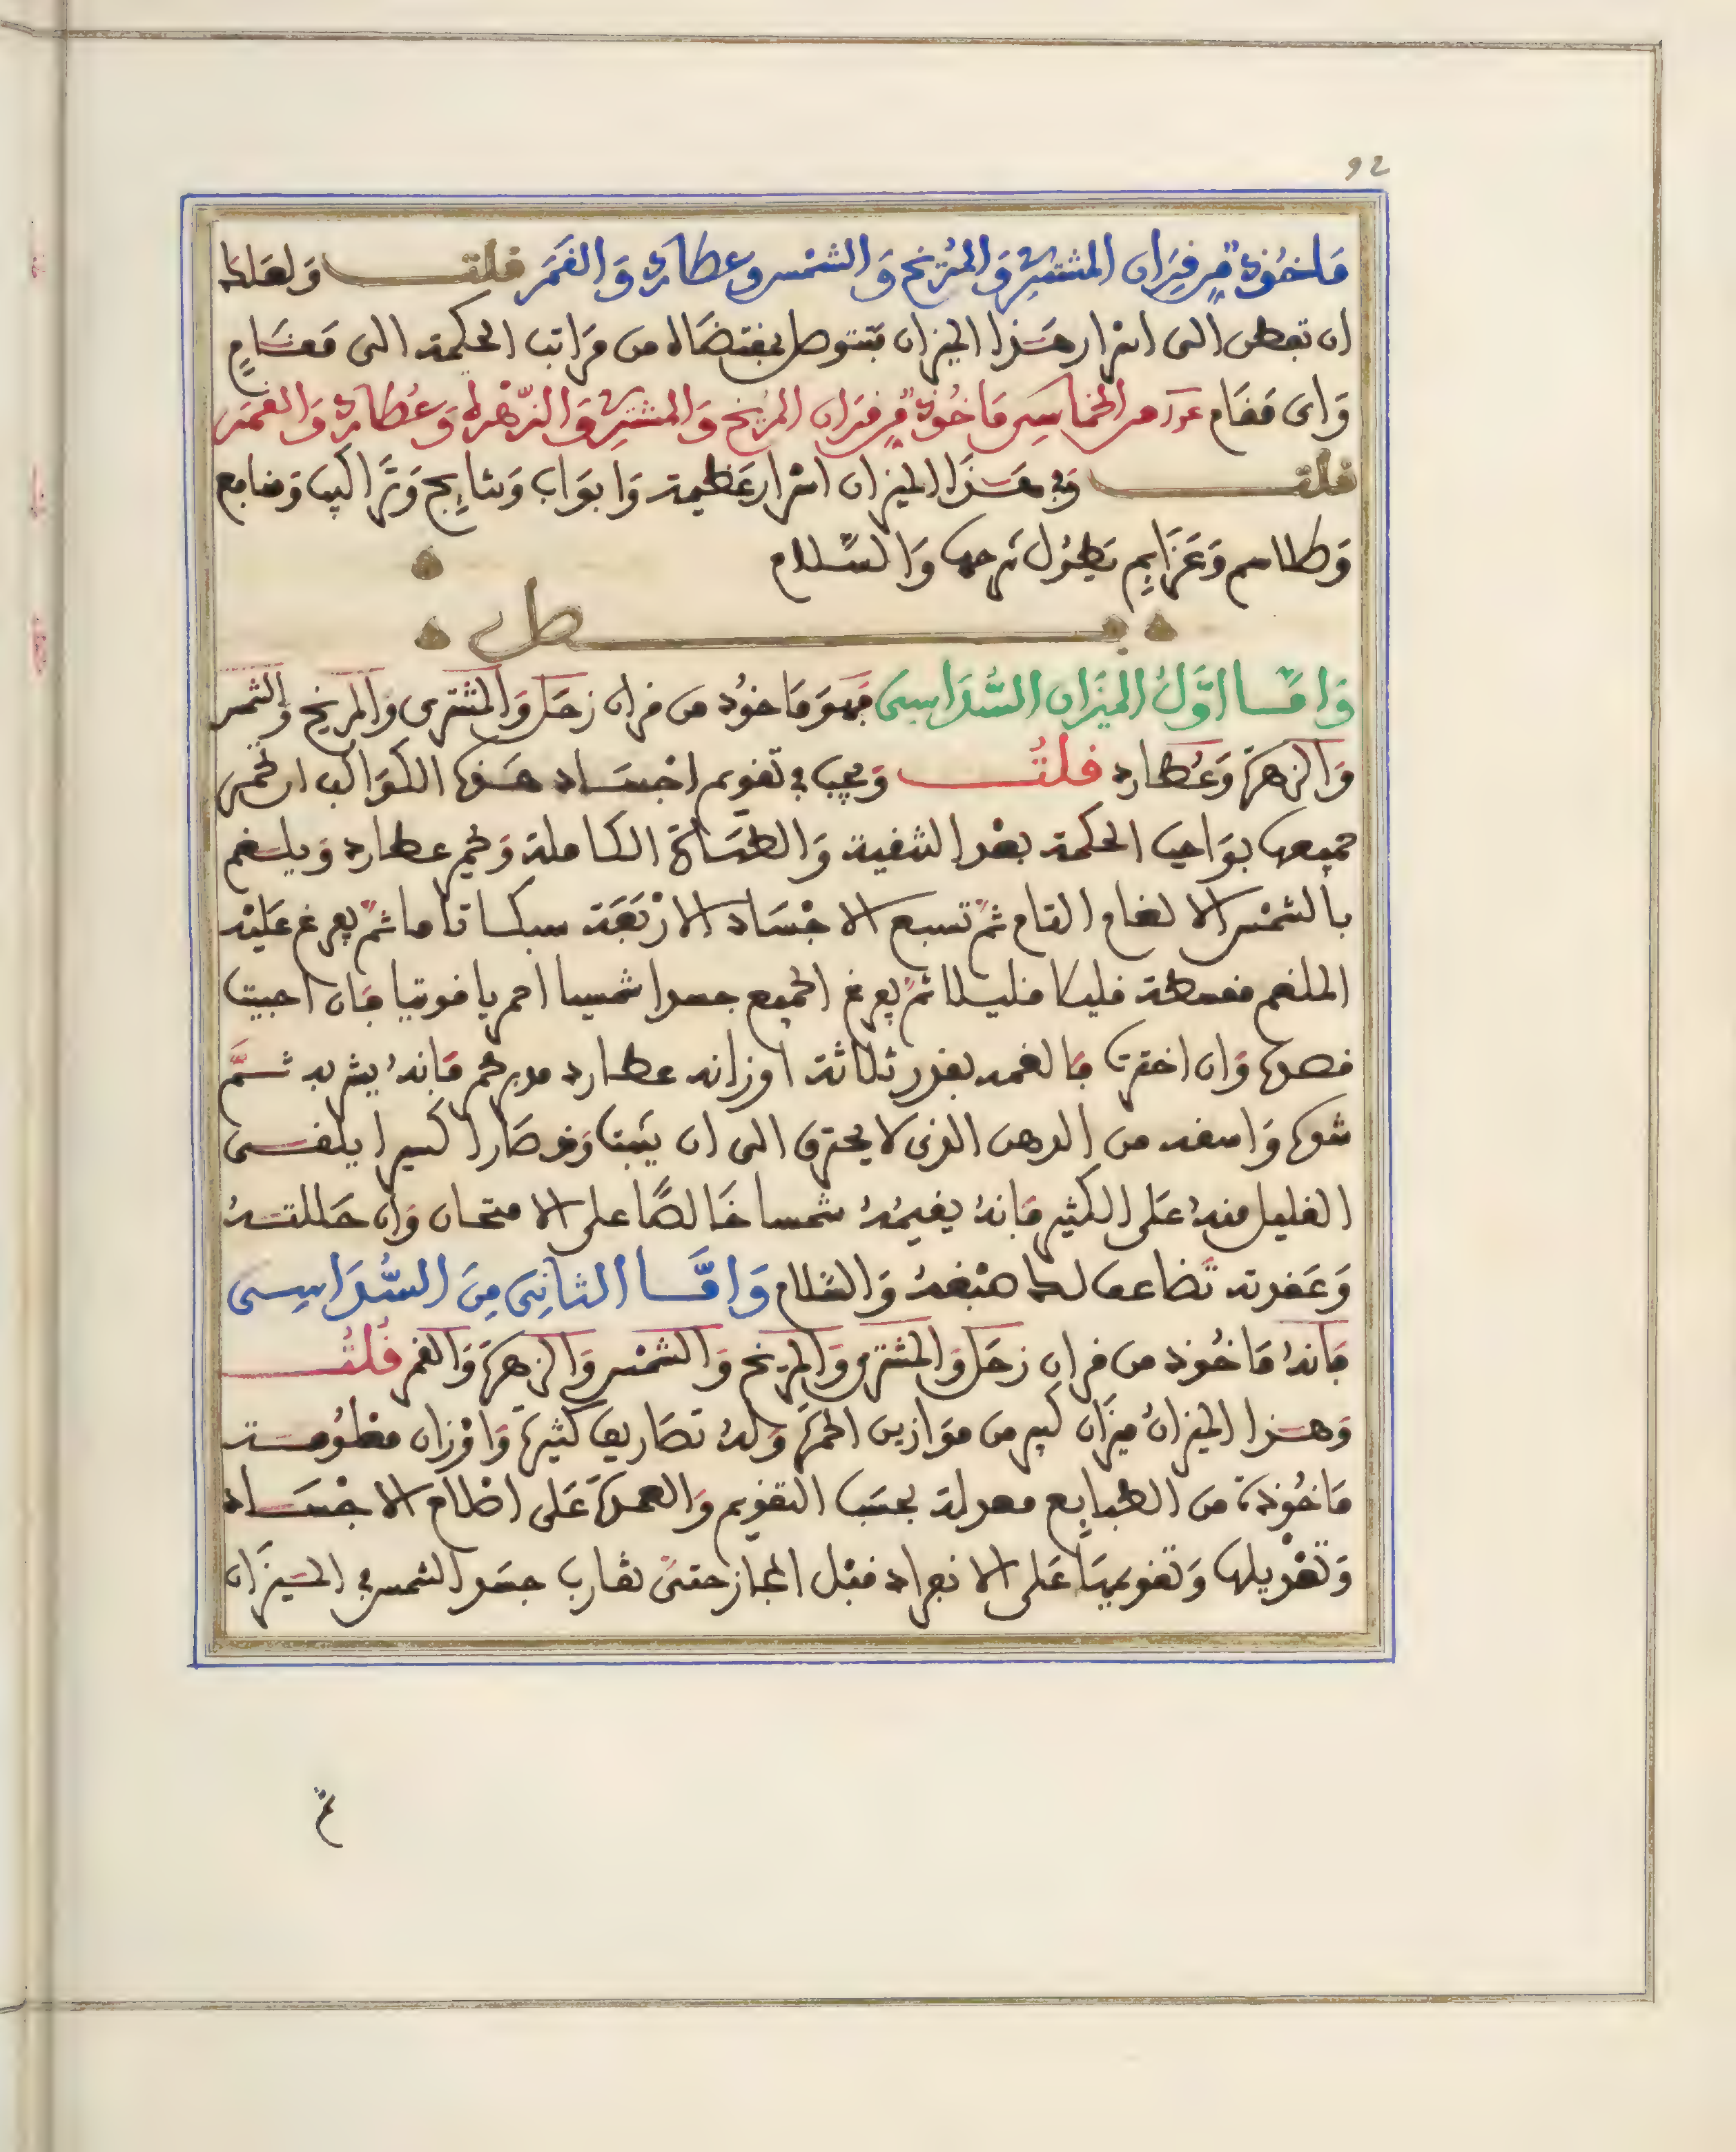 92
مَاخُوذٌ مِن قِرَان المشتري وَالمرّيخ وَالشمْس وعطارد وَالقَمَر قلت وَلعَلك
ان تفطن الى اسْرار هَذا الميزان فتتوصل بمقتضَاه من مَرَاتب الحكمة الى مَقَامٍ
وَاى مَقَام من الخماسِى مَاخُوذٌ مِن قرَان المرّيخ وَالمشتري وَالزّهْرة وَعُطارد وَالقمَر
قلت وَفى هَذَا الميزان اسْرار عَظيمة وَابوَاب وَنتايج وَتَرَاكيب وَمنافع
وَطلاسم وَعَزَايم يَطُول شرحها وَالسّلام
فصل
وَامَّا اوَّلُ الميزَان السُّدَاسِى فهوَ مَاخوُذ من قران زحَل وَالمشترى وَالمريخ وَالشمس
وَالزهرَة وَعُطارد قلتُ وَيجب فى تقويم اجسَاد هَذه الكوَاكب ان تحمر
جميعها بوَاجب الحكمة بعْد التنقية وَالطهَارة الكاملة وَتحمر عطارد وَيلغم
بالشمْس الالغام التام ثمّ تسبع الاجْسَاد الارْبَعَة سبكا تاما ثمّ يفرغ عَليْه
الملغم قليلا قليلا ثمّ يفرغ الجميع جسدا شمسيا احمر ياقوتيا فان احببت
وَان اخترت فَالغمه بقدر ثلاثة اوزانه عطارد محمر فَانهُ يشربه ثمَّ
شوه وَاسقه من الدهن الذى لا يحترق الى ان يثبت وَقد صَار اكسيرا يلقى
القليل منهُ عَلى الكثير فَانهُ يقيمُهُ شمسا خَالصًا على الامتحان وَان حَللتهُ
وَعَقدته تضاعف لك صبْغهُ وَالسّلام وَامَّا الثانِى مِنَ السُّدَاسِى
فَانهُ مَاخُوذ من قران زحَل وَالمشترى وَالمريخ وَالشمْس وَالزهرَة وَالقمر قُلتُ
وَهذا الميزانُ ميزَان كبير من مَوَازين الحمرَة وَلهُ تصَاريف كثيرَة وَاوْزان مَعْلوُمة
مَاخُوذة من الطبايع معدلة بحسَب التقويم وَالعمدة عَلى اصْلاح الاجْسَاد
وَتعْديلها وَتقويمهَا عَلى الانفراد قبْل المجاز حتىّ تقارب جسَد الشمس فى الميزَان
ثمّ